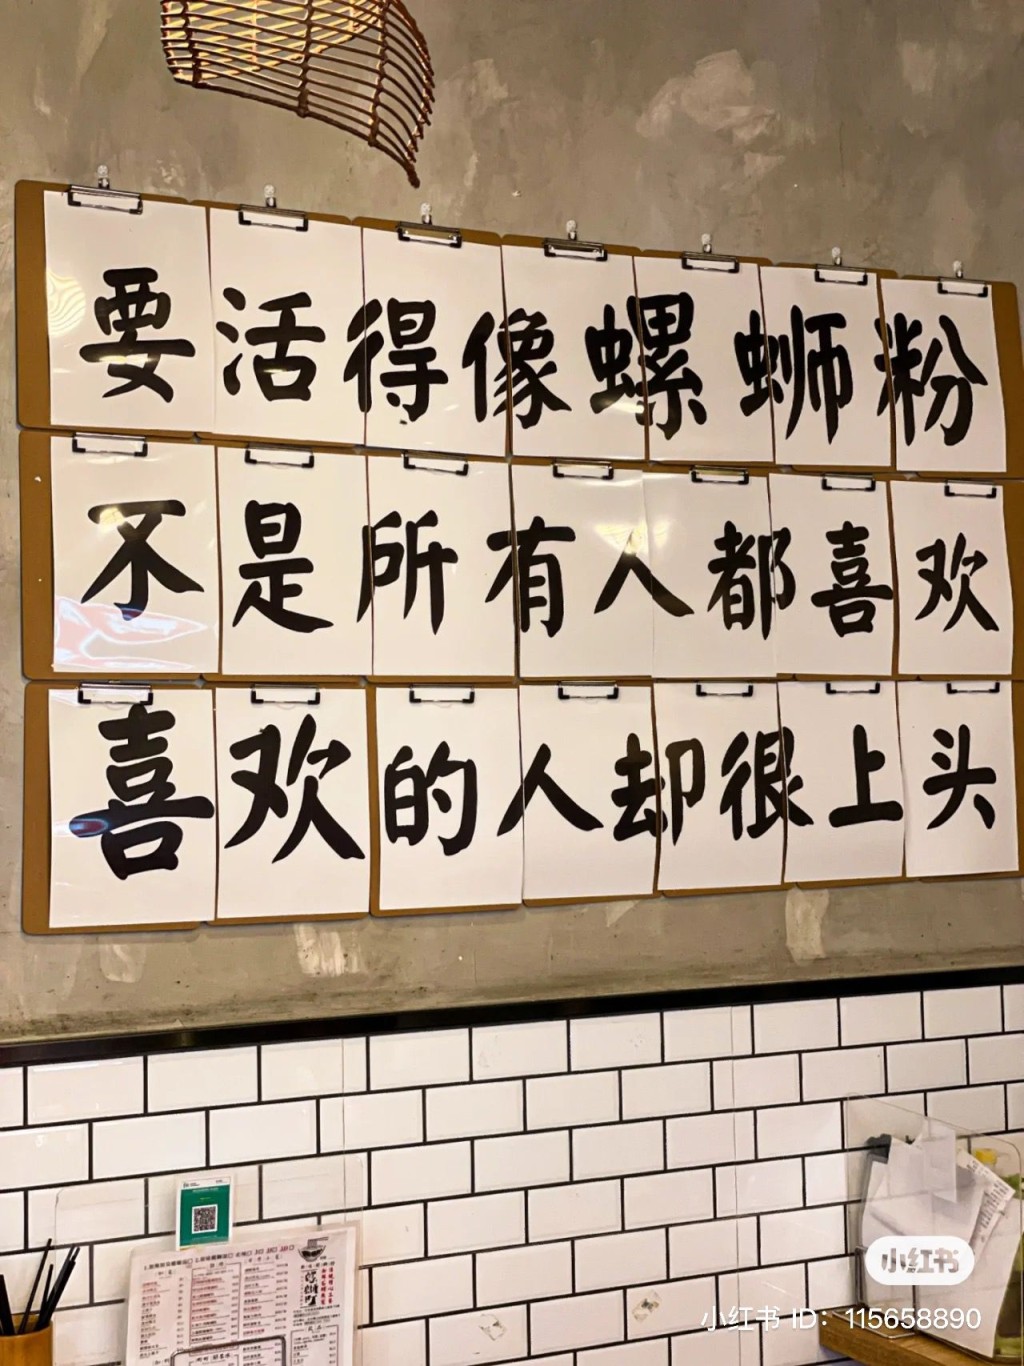 要活得像螺蛳粉
不是所有人都喜欢
喜欢的人却很上头
小红书
小红书 ID: 115658890